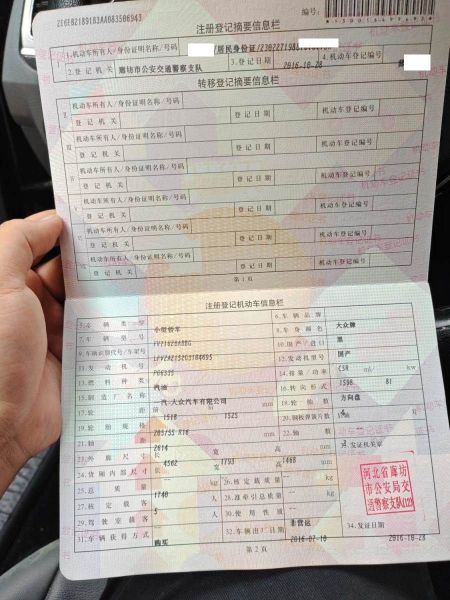 注册登记摘要信息栏
编号:
1.机动车所有人/身份证明名称/号码 /居民身份证/
2.登记机关 廊坊市公安交通警察支队 3.登记日期 2016-10-28 4.机动车登记编号
转移登记摘要信息栏
机动车所有人/身份证明名称/号码
登记机关 登记日期 机动车登记编号
机动车所有人/身份证明名称/号码
登记机关 登记日期 机动车登记编号
机动车所有人/身份证明名称/号码
登记机关 登记日期 机动车登记编号
机动车所有人/身份证明名称/号码
登记机关 登记日期 机动车登记编号
机动车所有人/身份证明名称/号码
登记机关 登记日期 机动车登记编号
机动车所有人/身份证明名称/号码
登记机关 登记日期 机动车登记编号
第1页
注册登记机动车信息栏
5.车辆类型 小型轿车 6.车辆品牌 大众牌
7.车辆型号 8.车身颜色 黑
9.车辆识别代号/车架号 10.国产/进口 国产
11.发动机号 12.发动机型号 CSR
13.燃料种类 汽油 14.排量/功率 1598 ml/ 81 kw
15.制造厂名称 一汽-大众汽车有限公司 16.转向形式 方向盘
17.轮距 前 1518 后 1525 mm 18.轮胎数 4
19.轮胎规格 205/55 R16 20.钢板弹簧片数
21.轴距 2614 mm 22.轴数 2
23.外廓尺寸 长 4562 宽 1793 高 1468 mm 33.发证机关章
24.货厢内部尺寸 长 宽 高 mm
25.总质量 1740 kg 26.核定载质量 kg
27.核定载客 5 人 28.准牵引总质量 kg
29.驾驶室载客 人 30.使用性质 非营运
31.车辆获得方式 购买 32.车辆出厂日期 34.发证日期 2016-10-28
河北省廊坊
市公安局交
通警察支队
第2页